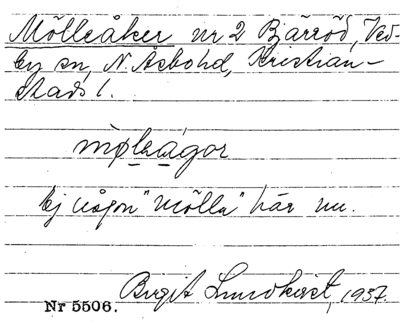 Mölleåker nr 2 Bjärröd, Ved-
by sn, N. Åsbo hd, Kristian-
stads l.
mø̀leágor
Ej någon "mölla" här nu.
Birgit Lundkvist, 1937.
Nr 5506.